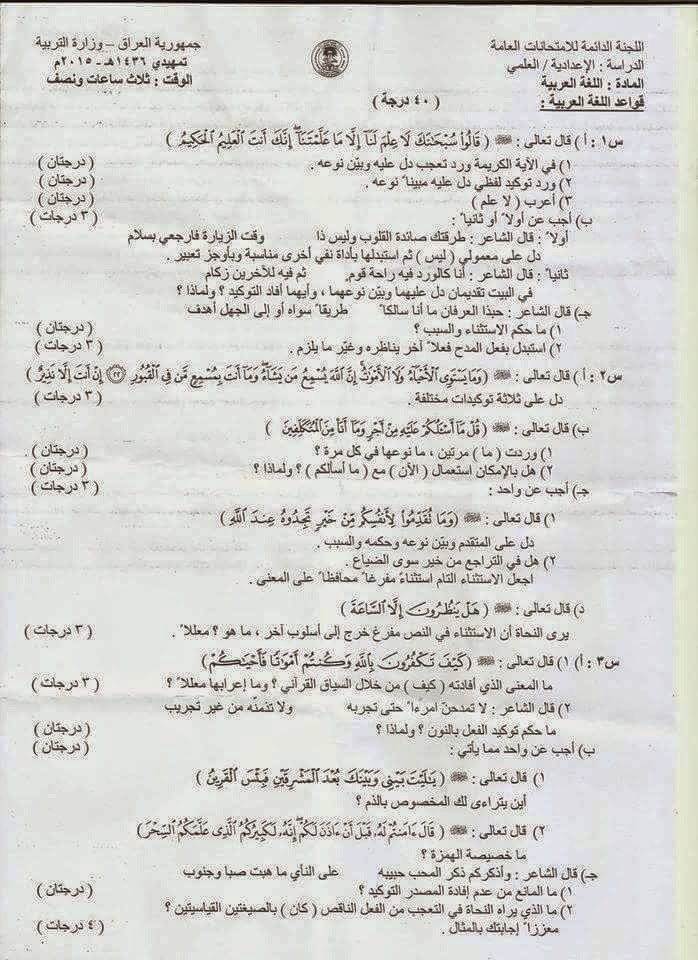 جمهورية العراق – وزارة التربية
تمهيدي ١٤٣٦هـ - ٢٠١٥م
الوقت : ثلاث ساعات ونصف
اللجنة الدائمة للامتحانات العامة
الدراسة : الإعدادية / العلمي
المادة : اللغة العربية
قواعد اللغة العربية :
( ٤٠ درجة )
س١ : أ ) قال تعالى : ﷺ ( قَالُوا سُبْحَانَكَ لَا عِلْمَ لَنَا إِلَّا مَا عَلَّمْتَنَا إِنَّكَ أَنتَ الْعَلِيمُ الْحَكِيمُ )
١) في الآية الكريمة ورد تعجب دل عليه وبيّن نوعه . ( درجتان )
٢) ورد توكيد لفظي دل عليه مبيناً نوعه . ( درجتان )
٣) أعرب ( لا علم ) ( درجتان )
ب) أجب عن أولاً أو ثانياً : ( ٣ درجات )
أولاً : قال الشاعر : طرقتك صائدة القلوب وليس ذا وقت الزيارة فارجعي بسلام
دل على معمولي ( ليس ) ثم استبدلها بأداة نفي أخرى مناسبة وبأوجز تعبير .
ثانياً : قال الشاعر : أنا كالورد فيه راحة قوم. ثم فيه للآخرين زكام
في البيت تقديمان دل عليهما وبيّن نوعهما ، وأيهما أفاد التوكيد ؟ ولماذا ؟
جـ) قال الشاعر : حبذا العرفان ما أنا سالكاً طريقاً سواه أو إلى الجهل أهدف
١) ما حكم الاستثناء والسبب ؟ ( درجتان )
٢) استبدل بفعل المدح فعلاً آخر يناظره وغيّر ما يلزم . ( ٣ درجات )
س٢ : أ ) قال تعالى : ﷺ ( وَمَا يَسْتَوِي الْأَحْيَاءُ وَلَا الْأَمْوَاتُ إِنَّ اللَّهَ يُسْمِعُ مَن يَشَاءُ وَمَا أَنتَ بِمُسْمِعٍ مَّن فِي الْقُبُورِ (٢٢) إِنْ أَنتَ إِلَّا نَذِيرٌ )
دل على ثلاثة توكيدات مختلفة . ( ٣ درجات )
ب) قال تعالى : ﷺ ( قُلْ مَا أَسْأَلُكُمْ عَلَيْهِ مِنْ أَجْرٍ وَمَا أَنَا مِنَ الْمُتَكَلِّفِينَ )
١) وردت ( ما ) مرتين ، ما نوعها في كل مرة ؟ ( درجتان )
٢) هل بالإمكان استعمال ( الآن ) مع ( ما أسألكم ) ؟ ولماذا ؟ ( درجتان )
جـ) أجب عن واحد : ( ٣ درجات )
١) قال تعالى : ﷺ ( وَمَا تُقَدِّمُوا لِأَنفُسِكُم مِّنْ خَيْرٍ تَجِدُوهُ عِندَ اللَّهِ )
دل على المتقدم وبيّن نوعه وحكمه والسبب .
٢) هل في التراجع من خير سوى الضياع .
اجعل الاستثناء التام استثناءً مفرغاً محافظاً على المعنى .
د) قال تعالى : ﷺ ( هَلْ يَنظُرُونَ إِلَّا السَّاعَةَ )
يرى النحاة أن الاستثناء في النص مفرغ خرج إلى أسلوب آخر ، ما هو ؟ معللاً . ( ٣ درجات )
س٣ : أ ) ١) قال تعالى : ﷺ ( كَيْفَ تَكْفُرُونَ بِاللَّهِ وَكُنتُمْ أَمْوَاتًا فَأَحْيَاكُمْ )
ما المعنى الذي أفادته ( كيف ) من خلال السياق القرآني ؟ وما إعرابها معللاً ؟ ( ٣ درجات )
٢) قال الشاعر : لا تمدحنّ امرءاً حتى تجربه ولا تذمّنه من غير تجريب
ما حكم توكيد الفعل بالنون ؟ ولماذا ؟ ( درجتان )
ب) أجب عن واحد مما يأتي : ( درجتان )
١) قال تعالى : ﷺ ( يَا لَيْتَ بَيْنِي وَبَيْنَكَ بُعْدَ الْمَشْرِقَيْنِ فَبِئْسَ الْقَرِينُ )
أين يتراءى لك المخصوص بالذم ؟
٢) قال تعالى : ﷺ ( قَالَ آمَنتُمْ لَهُ قَبْلَ أَنْ آذَنَ لَكُمْ إِنَّهُ لَكَبِيرُكُمُ الَّذِي عَلَّمَكُمُ السِّحْرَ )
ما خصيصة الهمزة ؟
جـ) قال الشاعر : وأذكركم ذكر المحب حبيبه على النأي ما هبت صبا وجنوب
١) ما المانع من عدم إفادة المصدر التوكيد ؟ ( درجتان )
٢) ما الذي يراه النحاة في التعجب من الفعل الناقص ( كان ) بالصيغتين القياسيتين ؟
معززاً إجابتك بالمثال . ( ٤ درجات )